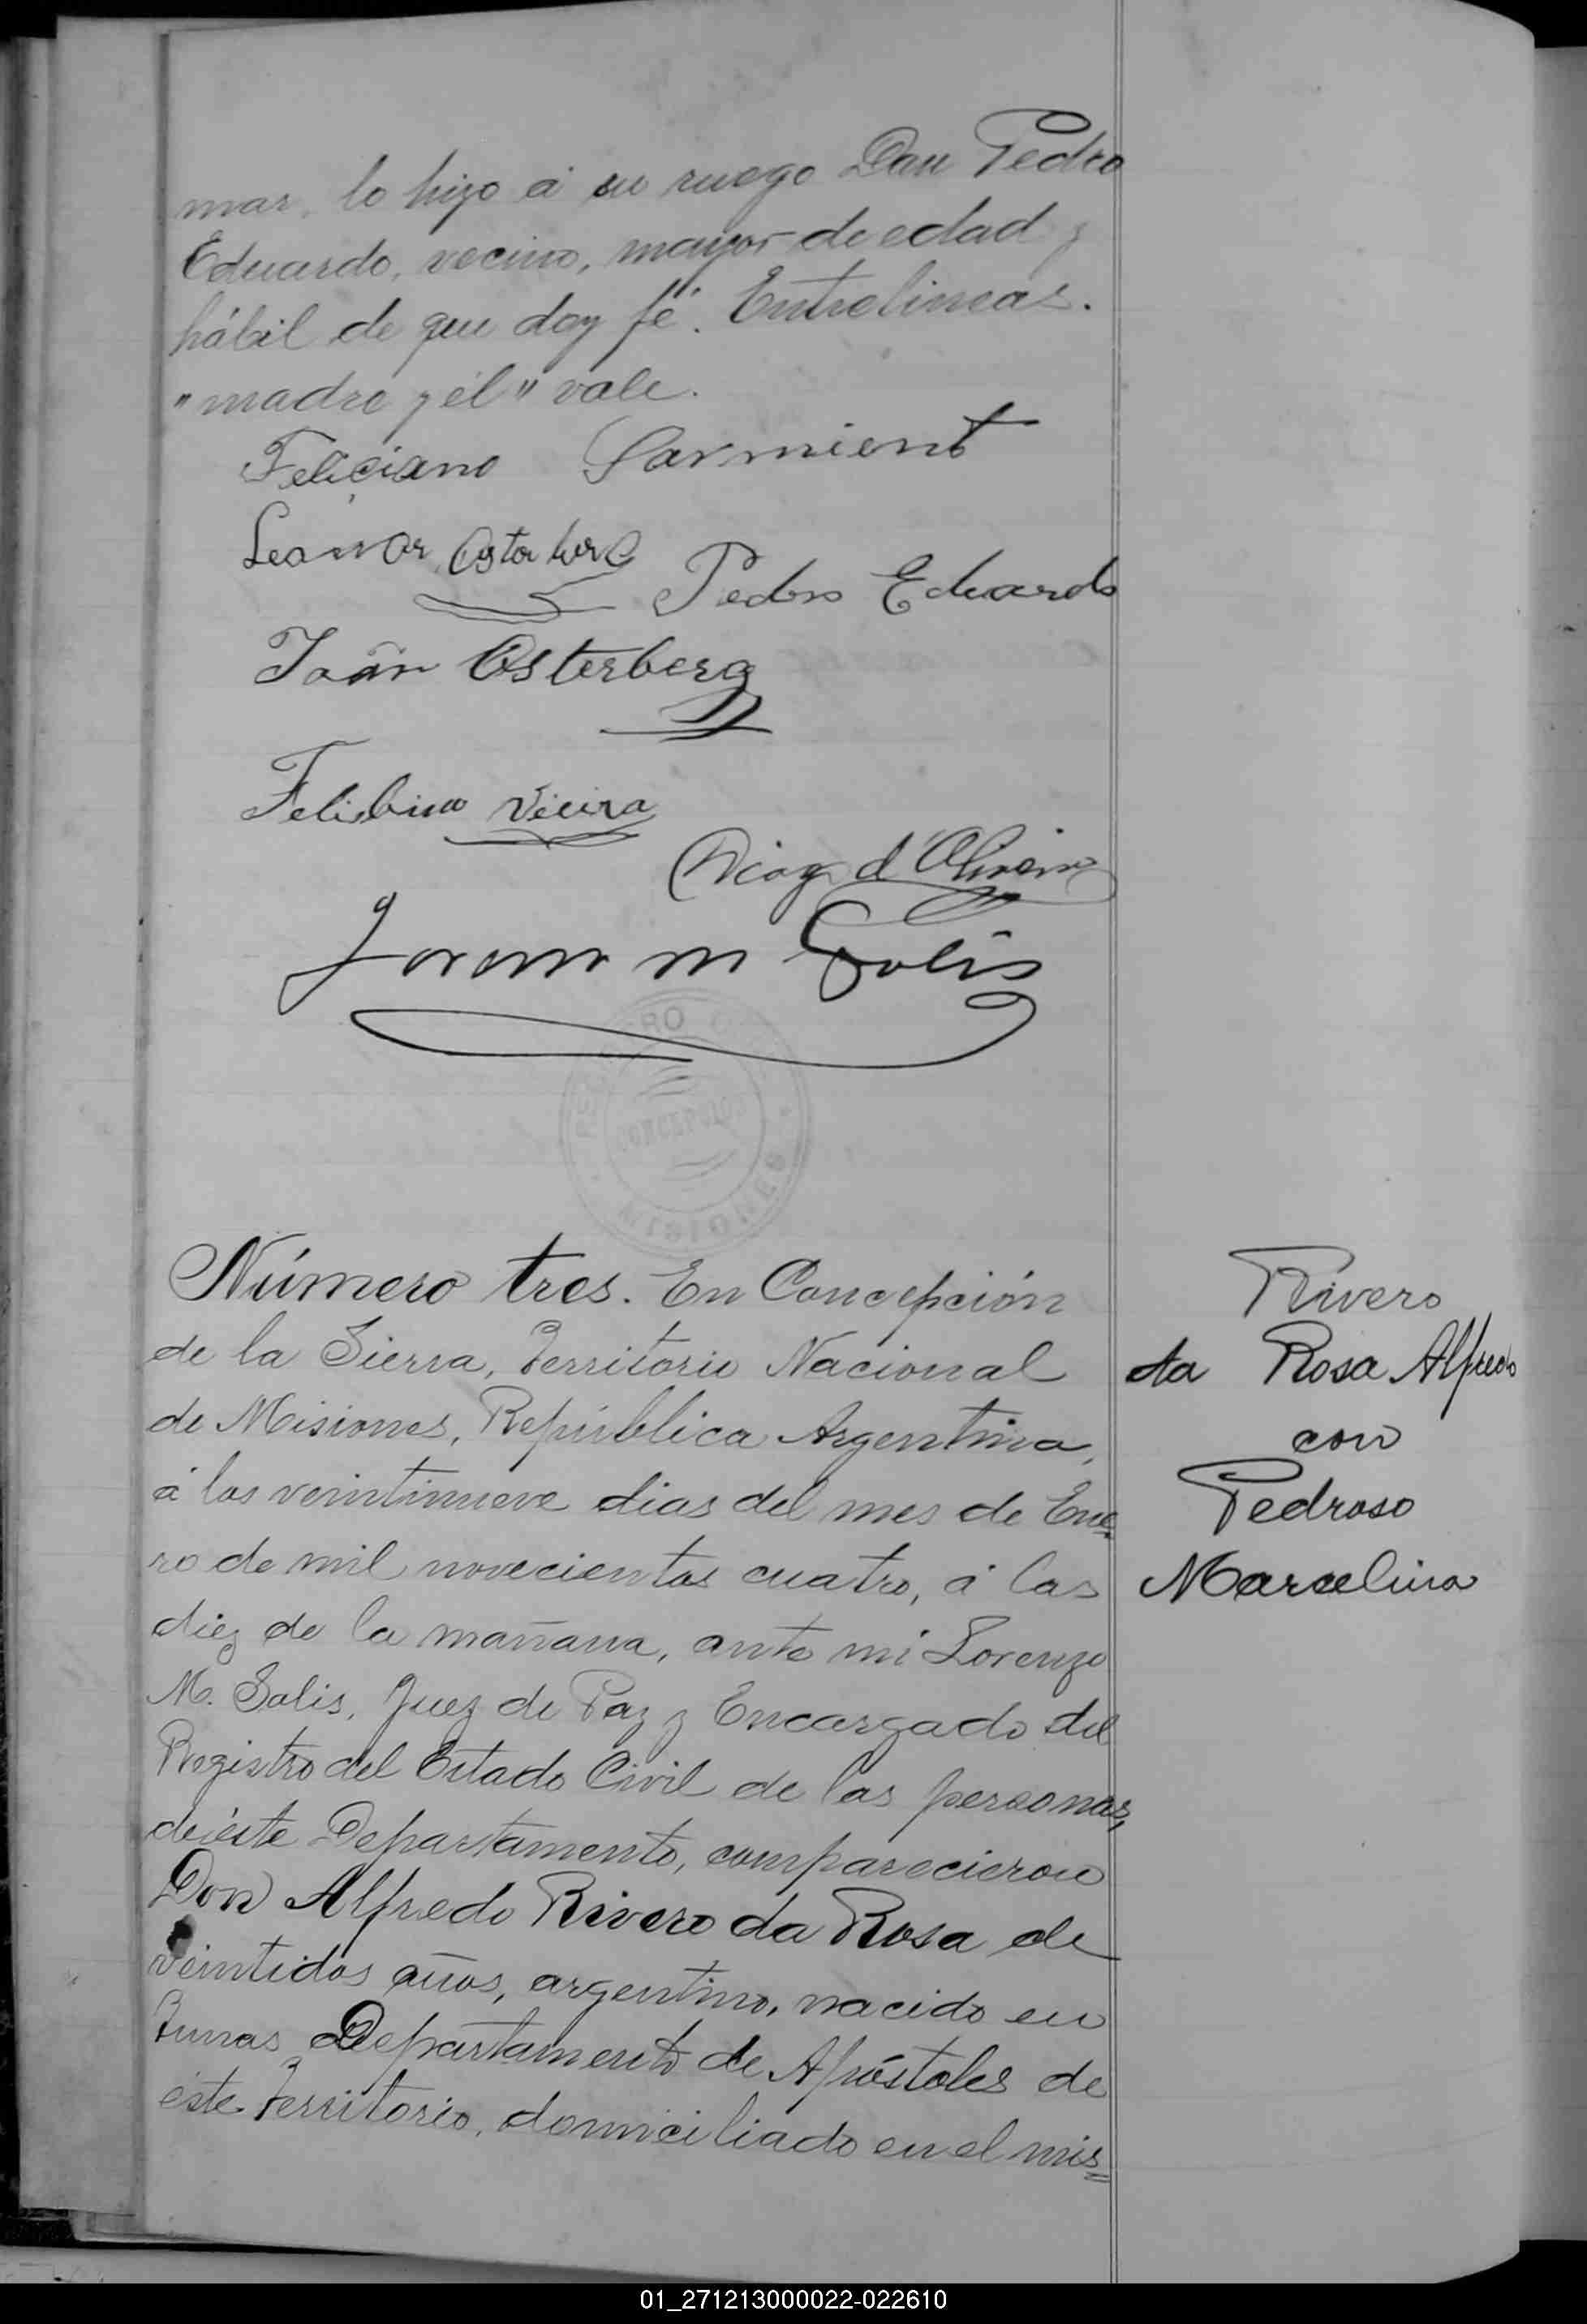 mar, lo hizo á su ruego Don Pedro
Eduardo, vecino, mayor de edad y
hábil de que doy fé. Entrelineas.
"madre y él" vale.
Feliciano Sarmiento
Leonor Osterberg
Pedro Eduardo
Joan Osterberg
Felisbino Vieira
d'Oliveira
Lorenzo M Solis
CONCEPCION
MISIONES
Número tres. En Concepción
de la Sierra, Territorio Nacional
de Misiones, República Argentina,
á los veintinueve dias del mes de Ene=
ro de mil novecientos cuatro, á las
diez de la mañana, ante mi Lorenzo
M. Solis, Juez de Paz y Encargado del
Registro del Estado Civil de las personas,
de éste Departamento, comparecieron
Don Alfredo Rivero da Rosa de
veintidos años, argentino, nacido en
Tunas Departamento de Apóstoles de
éste Territorio, domiciliado en el mis=
Rivero
da Rosa Alfredo
con
Pedroso
Marcelina
01_271213000022-022610